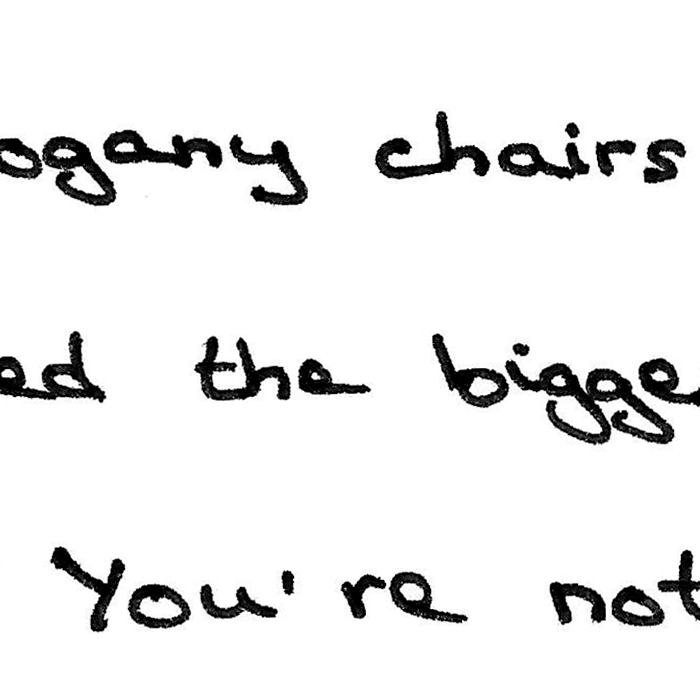 ogany chairs
ed the bigge
You're not